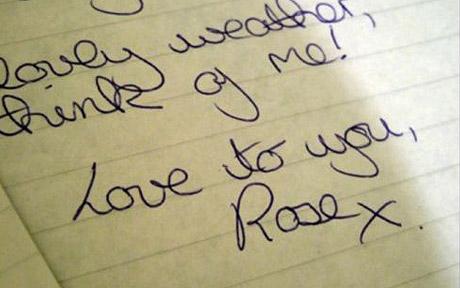 lovely weather,
think of me!
Love to you,
Rose x.